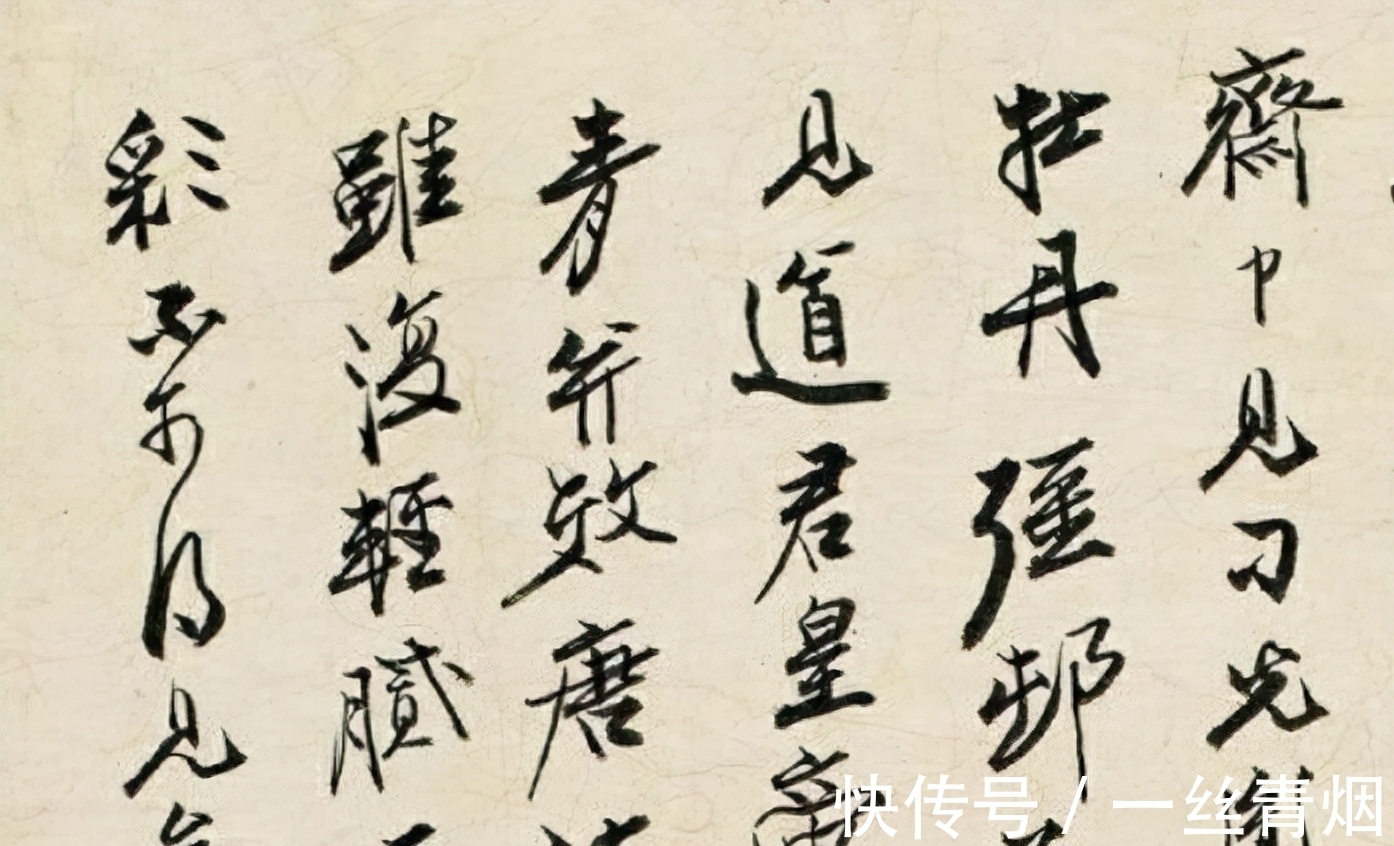 齋中見刁光
牡丹強邨
見道君皇
青弁致唐
雖復輕膩
彩不可得見
快传号/一丝青烟